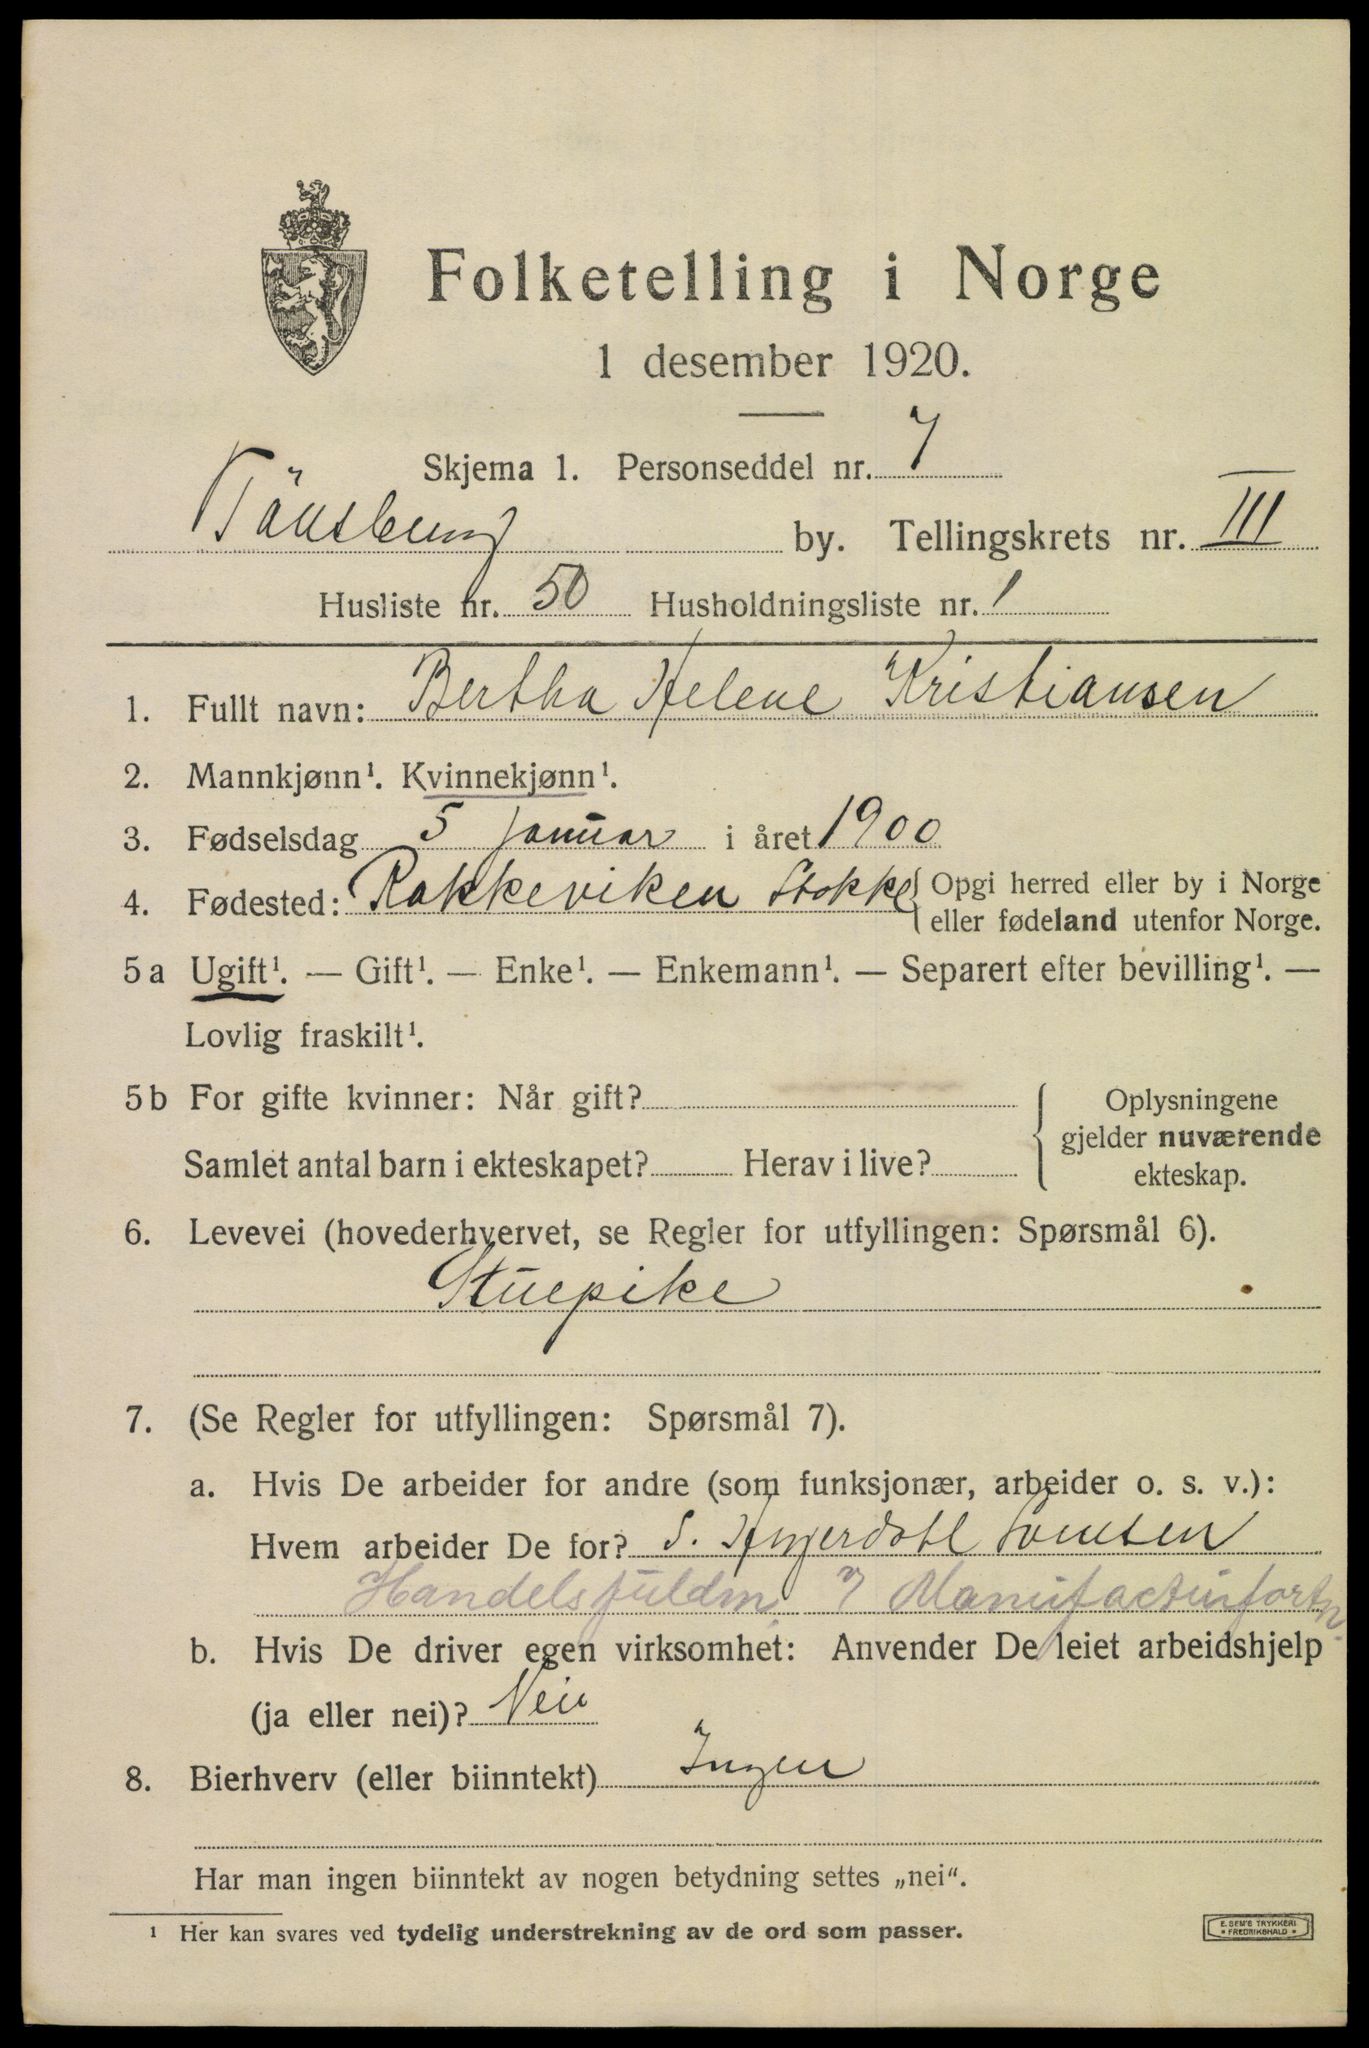 Folketelling i Norge
1 desember 1920.
Skjema 1. Personseddel nr. 7
Tönsberg by. Tellingskrets nr. III
Husliste nr. 50 Husholdningsliste nr. 1
1. Fullt navn: Bertha Helene Kristiansen
2. Mannkjønn¹. Kvinnekjønn¹.
3. Fødselsdag 5 januar i året 1900
4. Fødested: Rakkeviken Stokke { Opgi herred eller by i Norge
eller fødeland utenfor Norge.
5a Ugift¹. — Gift¹. — Enke¹. — Enkemann¹. — Separert efter bevilling¹. —
Lovlig fraskilt¹.
5b For gifte kvinner: Når gift?
Samlet antal barn i ekteskapet? Herav i live?
Oplysningene
gjelder nuværende
ekteskap.
6. Levevei (hovederhvervet, se Regler for utfyllingen: Spørsmål 6).
Stuepike
7. (Se Regler for utfyllingen: Spørsmål 7).
a. Hvis De arbeider for andre (som funksjonær, arbeider o. s. v.):
Hvem arbeider De for? S.
Handelsfuldm. i
b. Hvis De driver egen virksomhet: Anvender De leiet arbeidshjelp
(ja eller nei)? Nei
8. Bierhverv (eller biinntekt) Ingen
Har man ingen biinntekt av nogen betydning settes „nei“.
¹ Her kan svares ved tydelig understrekning av de ord som passer.
E. SEM'S TRYKKERI
* FREDRIKSHALD *